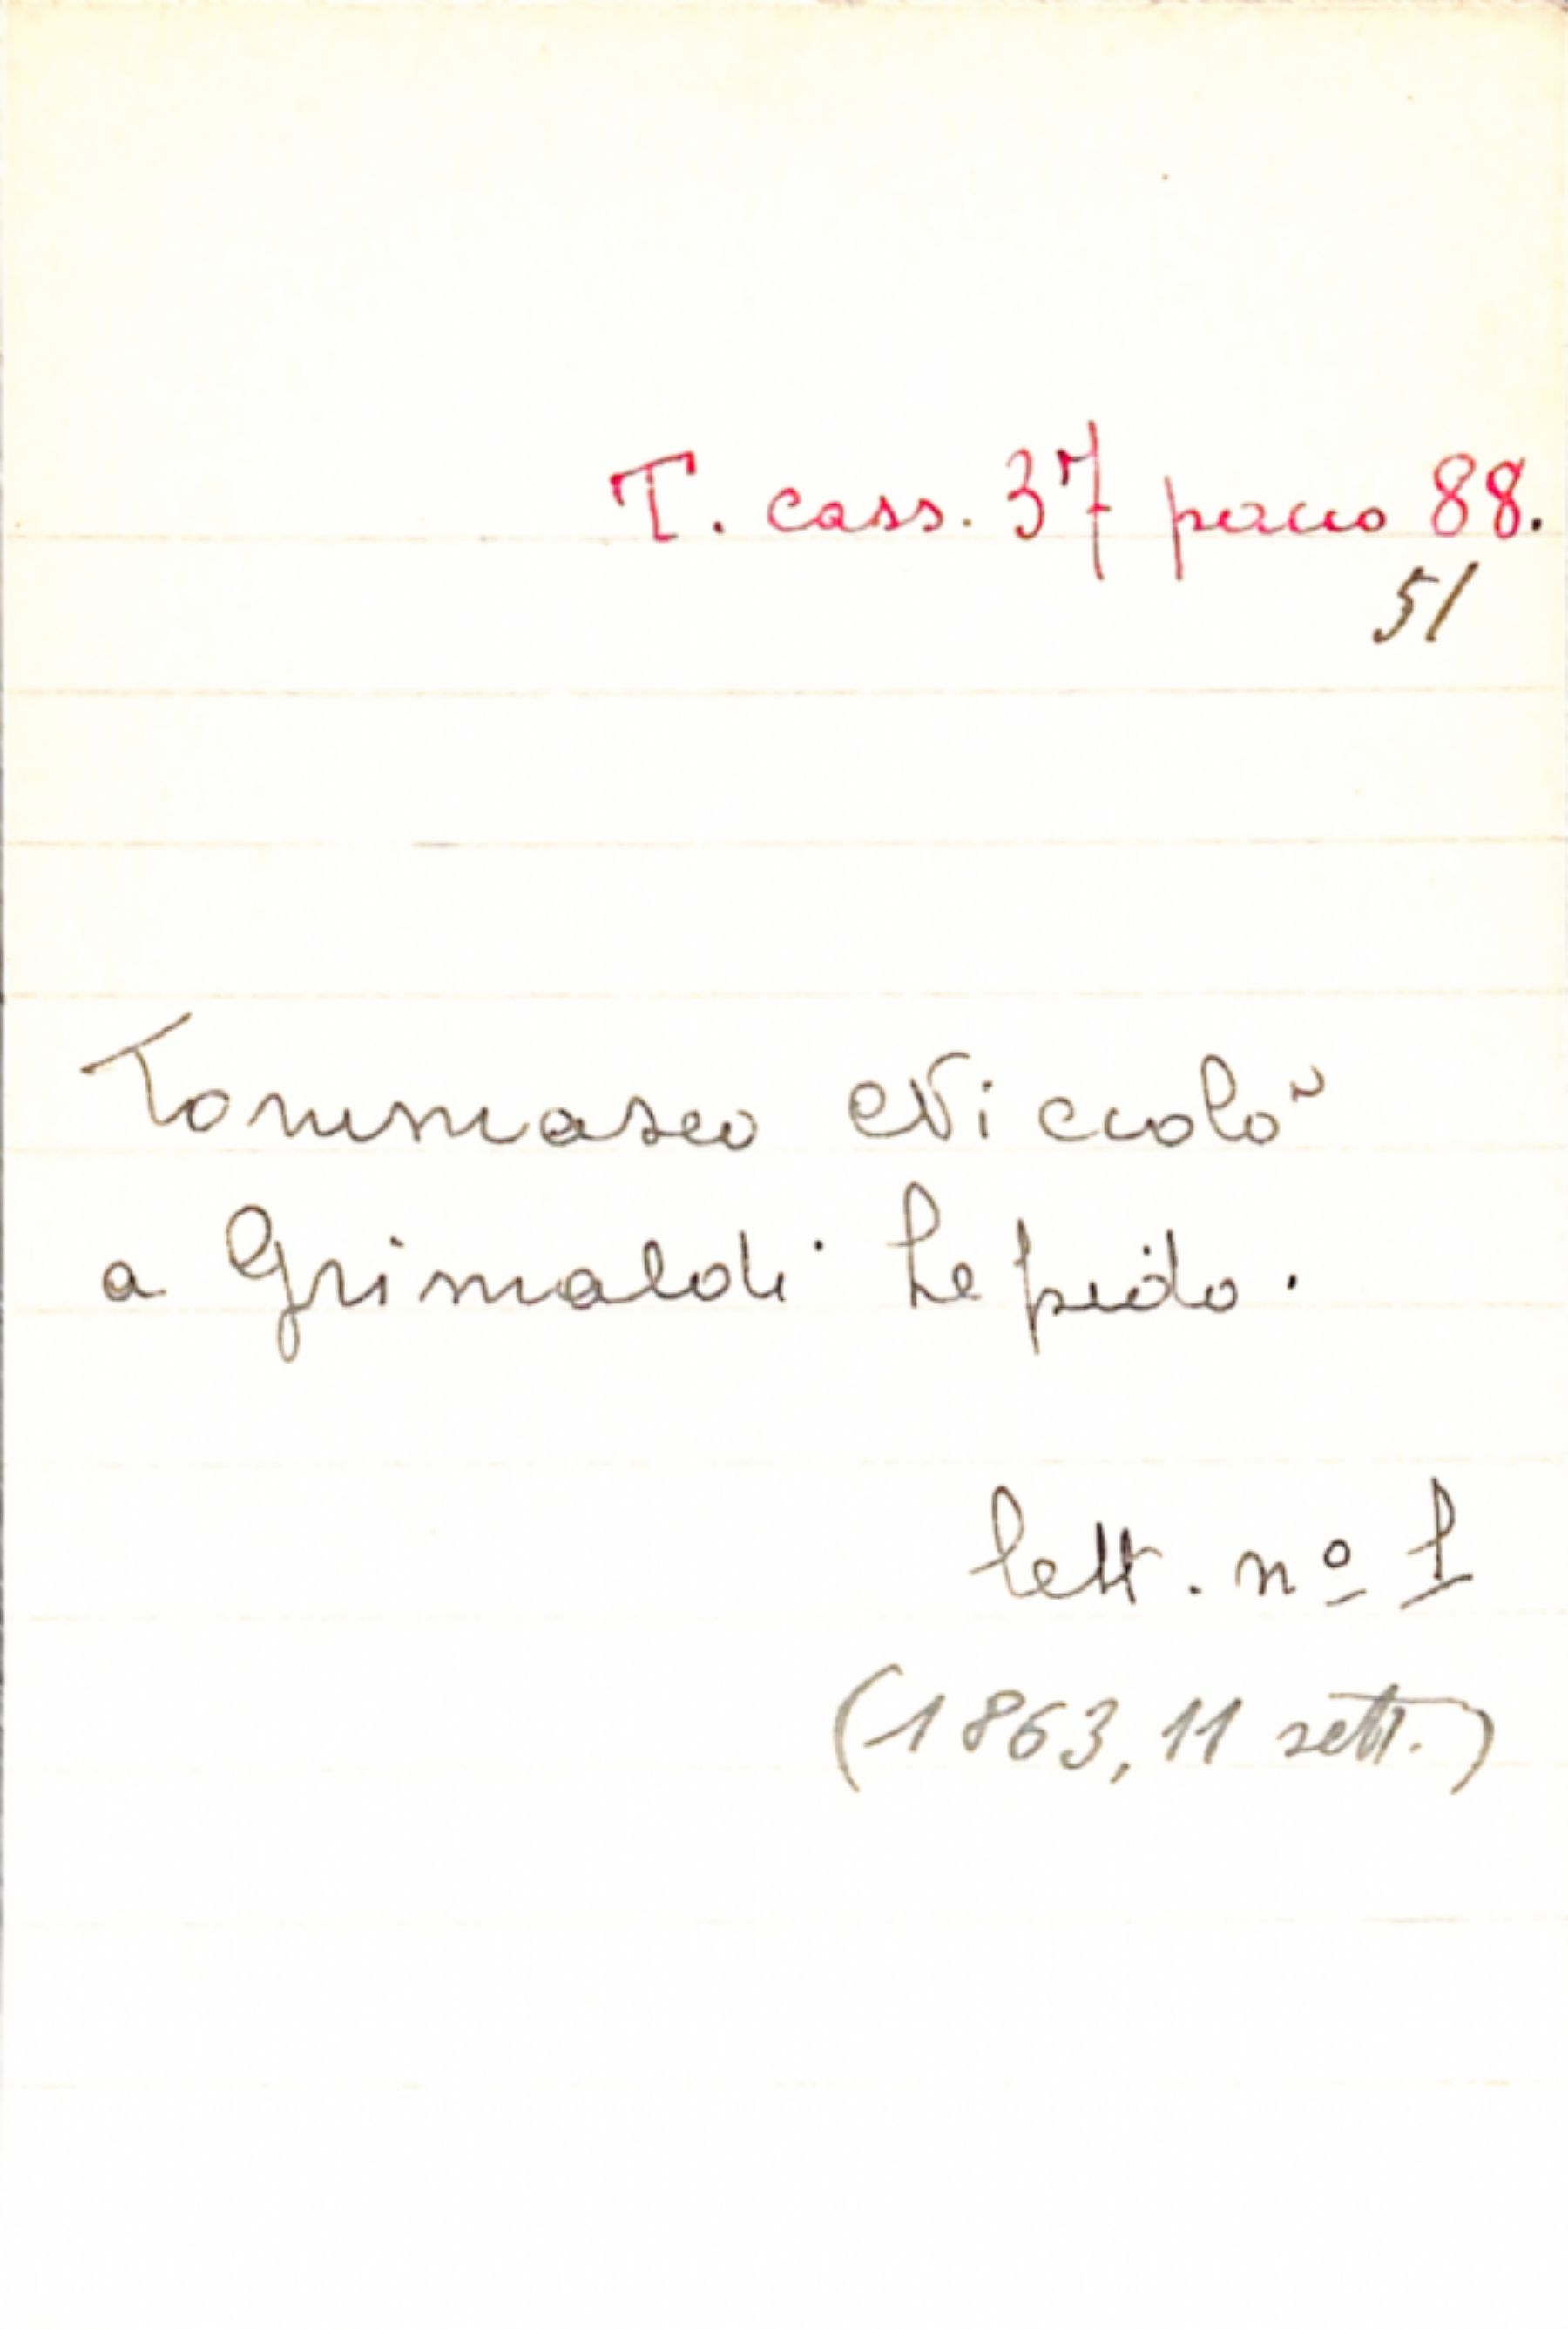 T. cass. 37 pacco 88.
51
Tommaseo Niccolò
a Grimaldi Lepido.
lett. nº 1
(1863, 11 sett.)